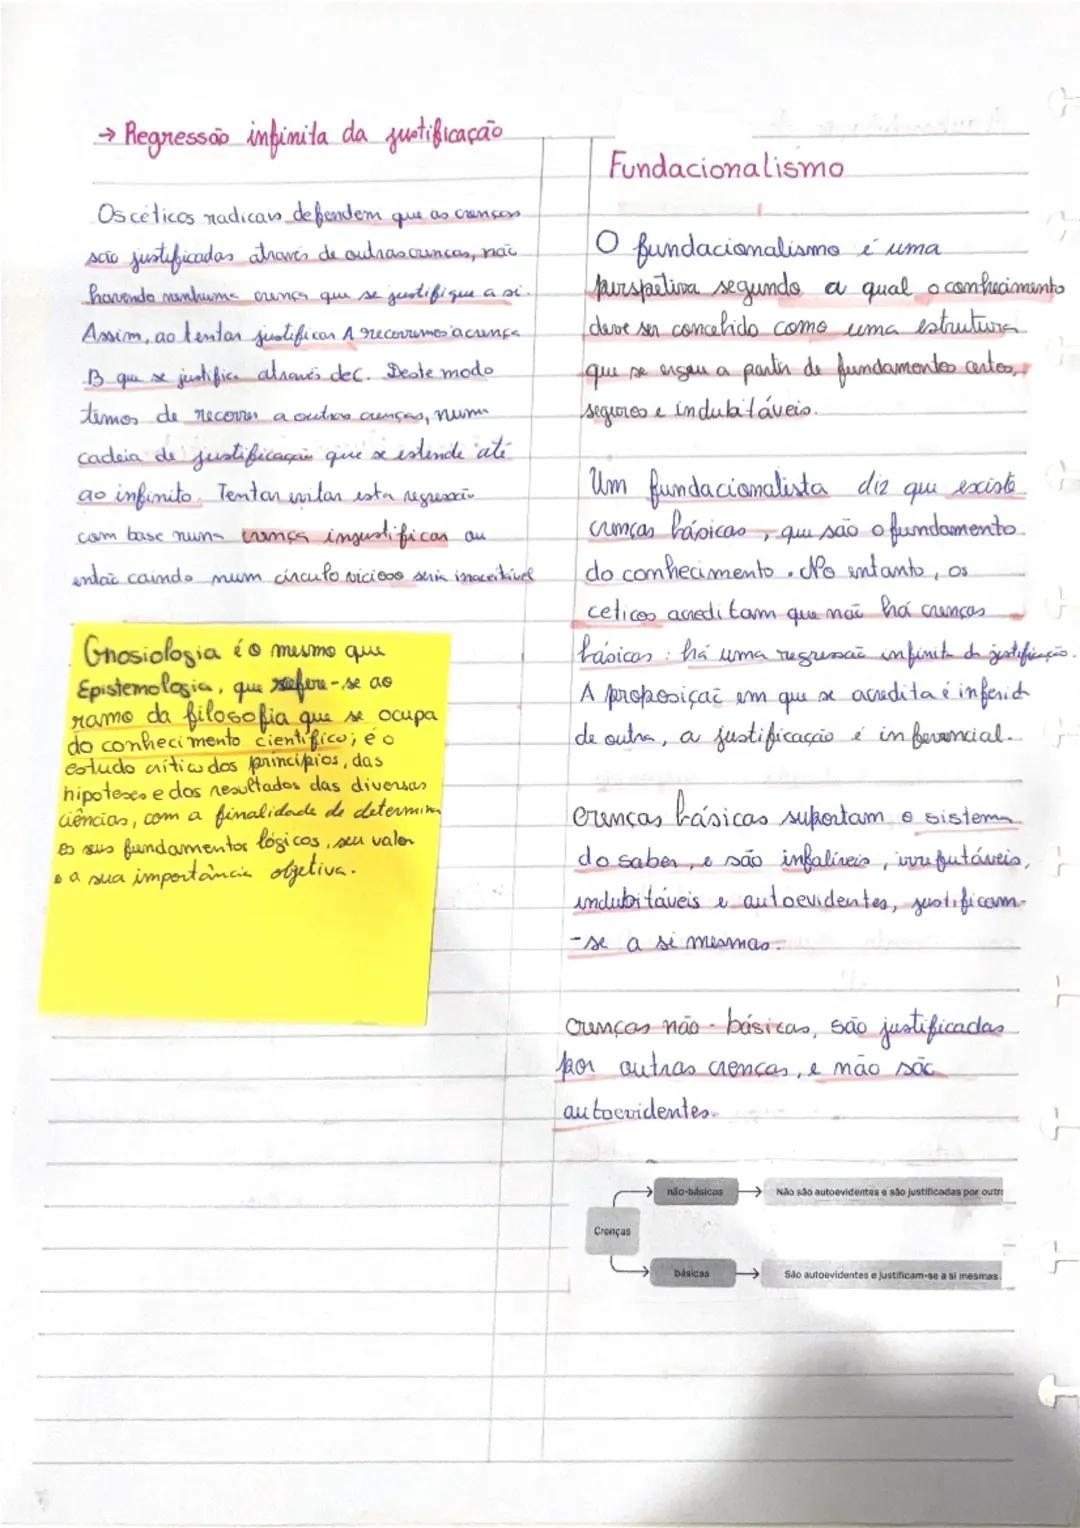 → Regressão infinita da justificação
Os céticos radicais defendem que as crenças
são justificadas através de outras crenças, não
havendo nenhuma crença que se justifique a si.
Assim, ao tentar justificar A recorremos a crença
B que se justifica através de C. Deste modo
temos de recorrer a outras crenças, numa
cadeia de justificação que se estende até
ao infinito. Tentar evitar esta regressão
com base numa crença injustificar ou
então caindo num círculo vicioso seria inaceitável
Gnosiologia é o mesmo que
Epistemologia, que refere-se ao
ramo da filosofia que se ocupa
do conhecimento científico; é o
estudo crítico dos princípios, das
hipoteses e dos resultados das diversas
ciências, com a finalidade de determinar
os seus fundamentos lógicos, seu valor
e a sua importância objetiva.
Fundacionalismo
O fundacionalismo é uma
perspetiva segundo a qual o conhecimento
deve ser concebido como uma estrutura
que se ergeu a partir de fundamentos certos,
seguros e indubitáveis.
Um fundacionalista diz que existe
crenças básicas, que são o fundamento
do conhecimento. No entanto, os
ceticos acreditam que não há crenças
básicas: há uma regressão infinita da justificação.
A proposição em que se acredita é inferida
de outra, a justificação é inferencial.
Crenças básicas suportam o sistema
do saber, e são infalíveis, irrefutáveis,
indubitáveis e autoevidentes, justificam-
-se a si mesmas.
Crenças não-básicas, são justificadas
por outras crenças, e não são
autoevidentes.
não-básicas
Não são autoevidentes e são justificadas por outr
Crenças
básicas
São autoevidentes e justificam-se a si mesmas